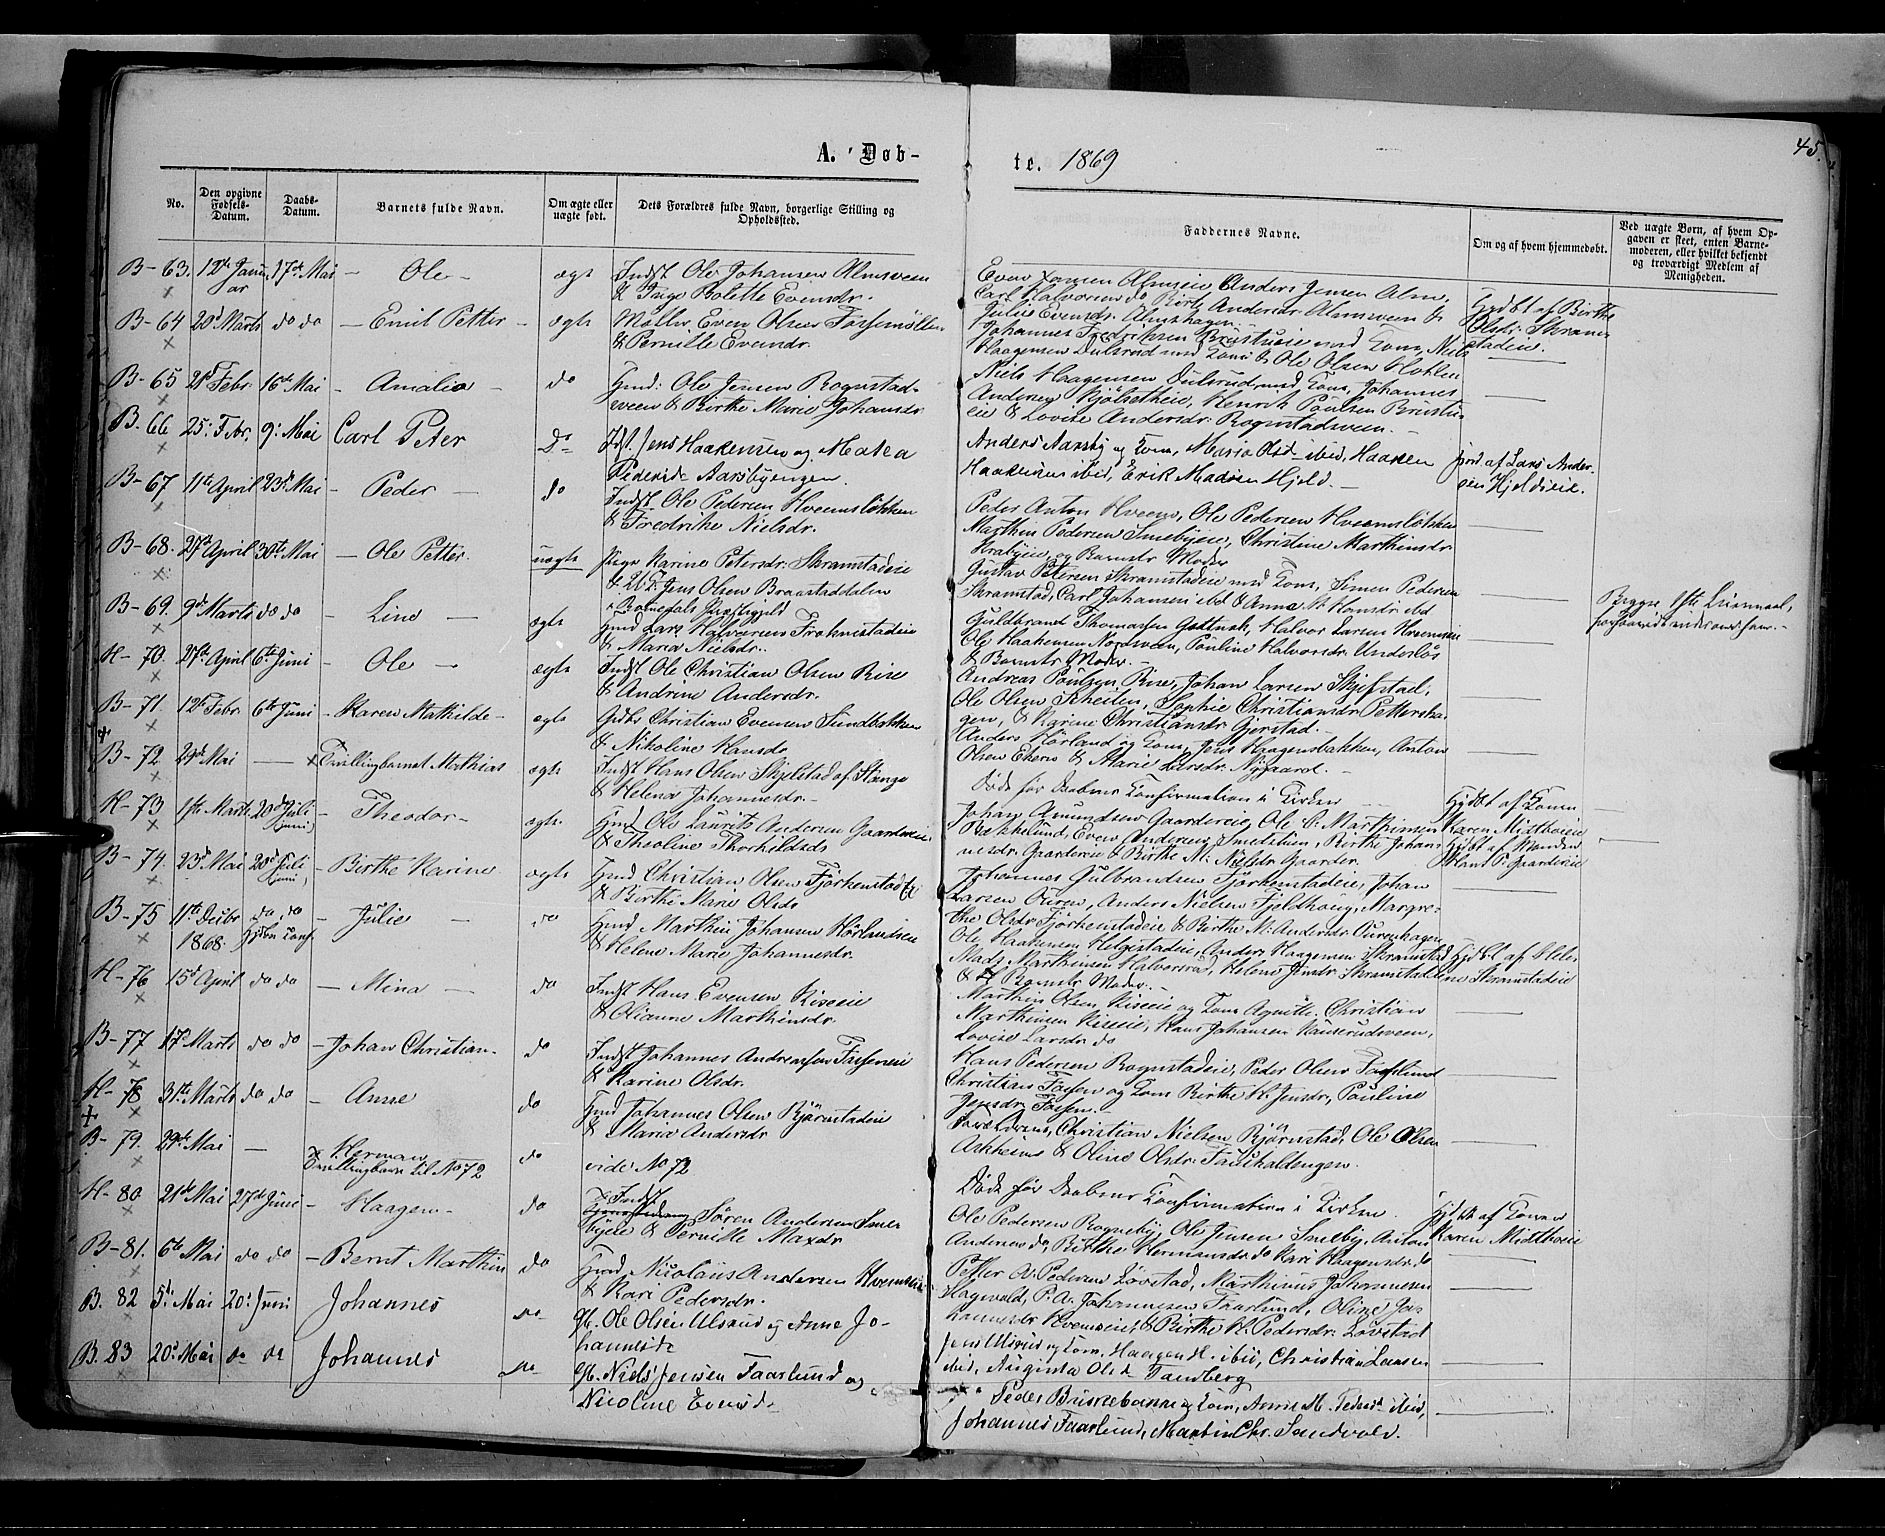 45.
A. Døb-
te. 1869
No.
Den opgivne Fødsels-Datum.
Daabs-Datum.
Barnets fulde Navn.
Om ægte eller uægte født.
Dets Forældres fulde Navn, borgerlige Stilling og Opholdssted.
Faddernes Navne.
Om og af hvem hjemmedøbt.
Ved uægte Børn, af hvem Opgaven er skeet, enten Barnemoderen, eller hvilket bekjendt og troværdigt Medlem af Menigheden.
B-63. 12te Januar 17de Mai - Ole - ægte Indst Ole Johansen Almsveen
& Inge Bolette Evensdr.
Even Jensen Almseie Anders Jensen Alm,
Carl Halvorsen do Birte Andersdr Almsveen &
Julie Evensdr. Almshagen
B-64 20d Marts do do - Emil Petter - ægte Møller Even Olsen Fossemøllen
& Pernille Evensdr.
Johannes Fredriksen Brustueie med Kone, Niels
Haagensen Dulsrud med Kone & Ole Olsen
Hjdbt af Birthe
Olsdr. Skramstadeie.
B-65 21d Febr. 16de Mai - Amalie - do Hmd: Ole Jensen Rognstad-
veen & Birthe Marie Johansdr
Niels Haagensen Dulsrud, med Kone, Johannes
Andersen Kjølsetheie, Henrik Paulsen Brustu-
eie & Lovise Andersdr. Rognstadsveen. -
B. 66 25: Febr. 9: Mai Carl Peter Do Idst. Jens Haakensen og Matea
Pedersdr Aarsbyengen.
Anders Aarsby og Kone, Maria Olsd ibid, Haaken
Haakensen ibid, Erik Madsen Hjeld. -
af Lars Ander-
sen Hjeldseie.
B-67 11te April 23de Mai - Peder - do Indst. Ole Pedersen Hveemsløkken
& Fredrike Nielsdr.
Peder Anton Hveem, Ole Pedersen Hveemsløkken
Marthin Pedersen Smebyeie, Christine Marthinsdr.
Krabyeie, og Barnets Moder
B-68. 27de April 30te Mai - Ole Petter. uægte Pige Karine Petersdr. Skramstadeie
& U.K. Jens Olsen Braastaddalen
Romedals Præstegjeld
Gustav Petersen Skramstadeie med Kone, Simen Pedersen
Skramstad, Carl Johansen ibd & Anne M. Hansdr ibd
Begge 1ste Leiermaal,
B-69. 9de Marts do do - Line - ægte Hmd Lars Halvorsen Frøhnestadeie
& Maria Nielsdr.
Guldbrand Thomassen Gottnsk, Halvor Larsen Hveemseie
Ole Haakensen Nordsveen, Pauline Halvorsdr. Underlös
& Barnets Moder. -
H-70. 27de April 6te Juni - Ole - ægte Indst Ole Christian Olsen Rise
& Andrine Andersdr.
Andreas Poulsen Rise, Johan Larsen Skjefstad,
Ole Olsen Scheilen, Sophie Christiansdr Petterska-
gen, & Karine Christiansdr Gjerstad.
B-71 12te Febr 6te Juni - Karen Mathilde - ægte Gdbr Christian Evensen Sundbakken
& Nikoline Hansdr
Anders Hørland og Kone, Jens Haagensbakken, Anton
Olsen Ekern & Marie Larsdr. Nygaard. -
B-72 29de Mai - Tvillingbarnet Mathias ægte Indst Hans Olsen Skjelstad af Stange
& Helena Johannesdr. -
Døde før Daabens Konfirmation i Kirken
Hjdbt af Konen
Karen Midtboeie
H-73 1ste Marts 20de Juli (Juni) - Theodor - ægte Hmd Ole Laurits Andersen Gaardereie
& Theoline Thorkildsdr
Johan Amundsen Gaardereie, Ole C. Marthinsen
Bakkelund, Even Andersen Smedstuen, Birthe Johan-
nesdr. Gaardereie & Birthe M. Nielsdr Gaarder.
Hjdbt af Manden
Hans P. Gaardereie
B-74. 23de Mai 20de Juli (Juni) - Birthe Karine ægte Hmd Christian Olsen Fjørkenstadeie
& Birthe Marie Olsdr
Johannes Gulbrandsen Fjørkenstadeie, Johan
Larsen Ouren, Anders Nielsen Fjeldhaug, Margre-
the Olsdr Fjørkenstadeie & Birthe M. Andersdr. Ourenhagen
B-75 11te Decbr 1868. do do - Julie - do Hmd Marthin Johansen Hörlandseie
& Helene Marie Johannesdr.
Ole Haakensen Helgestadeie, Anders Haagensen Skramstad
Mads Marthinsen Halvorsrud, Helene Jensdr Skramstadeie
& Barnets Moder. -
Hjdbt af Hele-
ne Skramstadeie
H-76 15de April do do - Mina - do Indst Hans Evensen Riseeie
& Oliane Marthinsdr.
Marthin Olsen Riseeie og Kone Agnethe, Christian
Marthinsen Riseeie, Hans Johansen Kaiserudsveen,
Lovise Larsdr do
B-77 17de Marts do do - Johan Christian - do Indst Johannes Andreassen Fosseneie
& Karine Olsdr.
Hans Pedersen Rognstadeie, Peder Olsen Faaslund
Christian Fossen og Kone Birthe H. Jensdr, Pauline
Jensdr. Fossen. -
H-78 31te Marts do do - Anne do Hmd Johannes Olsen Bjørnstadeie
& Maria Andersdr
Forældrene, Christian Nielsen Bjørnstad, Ole Olsen
Askheim & Oline Olsdr. Faushaltengen.
B-79. 29de Mai - Herman
Tvillingbarn til No 72 do vide No 72
Døde før Daabens Konfirmation i Kirken.
Hjdbt af Konen
Karen Midtboeie
H-80 21de Mai 27de Juni - Haagen - do Indst Søren Andersen Sme-
byeie & Pernille Maxdr
Ole Pedersen Rogneby, Ole Jensen Smeby, Anton
Andersen do, Birthe Hermansdr. do Kari Haagensdr. do
B-81. 6te Mai do do - Bernt Marthin do Hmd Nicolaus Andersen Hveemseie
& Kari Pedersdr.
Petter A. Pedersen Løvstad, Marthinus Johannesen
Hagevold, P. A. Johannesen Faarlund, Oline Jo-
hannesdr Hveemseie & Birthe K. Pedersdr. Løvstad
B. 82 5te Mai 20: Juni Johannes do Gb. Ole Olsen Ulsrud og Anne Jo-
hannesdr
Jens Ulsrud og Kone, Haagen H. ibid, Christian Larsen
ibid, Augusta Olsd Tandberg
B. 83 20: Mai do do Johannes do Gb. Niels Jensen Faarlund og
Nicoline Evensdr
Peder Buskebanne og Kone, Anne M. Pedersd ibid,
Johannes Faarlund, Martin Chr. Sandvold.